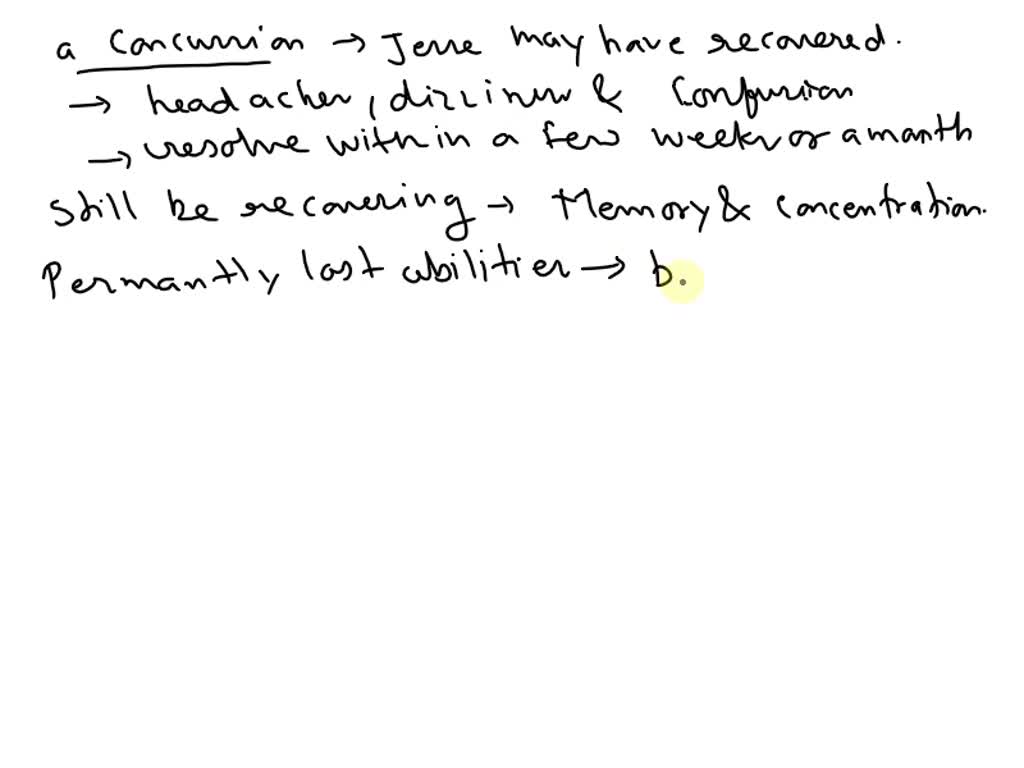 a Concussion → Jesse may have recovered.
→ headaches, dizziness & Confusion
→ resolve within a few weeks or a manth
Still be recovering → Memory & concentration.
Permantly lost abilities → b.